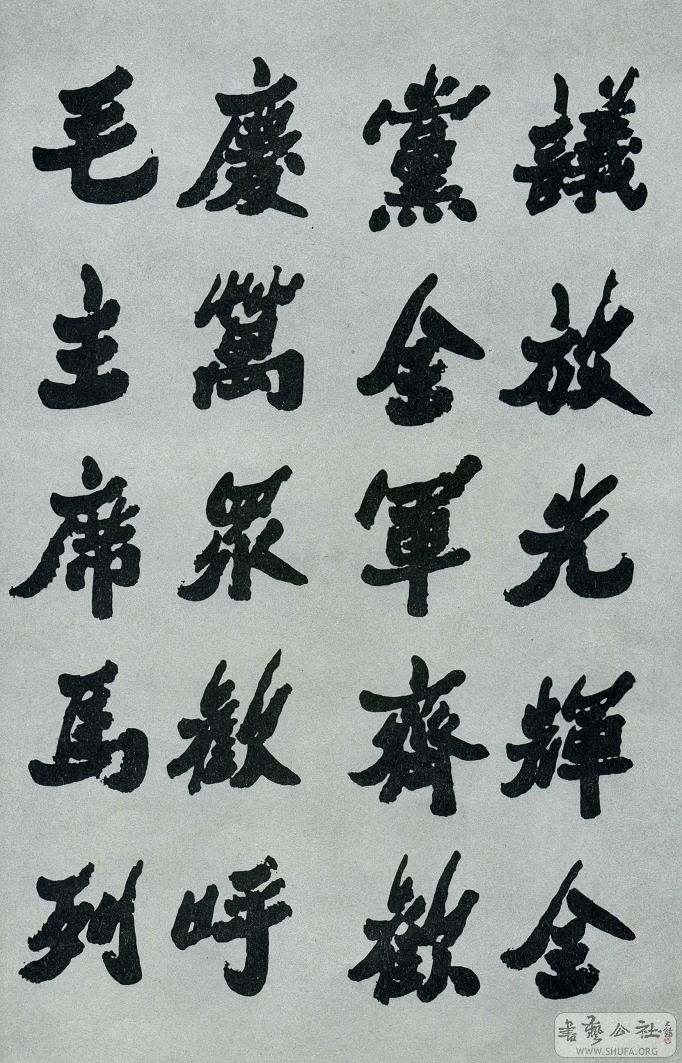 議放光輝全
黨全軍齊歡
慶萬眾歡呼
毛主席馬列
書藝公社
WWW.SHUFA.ORG